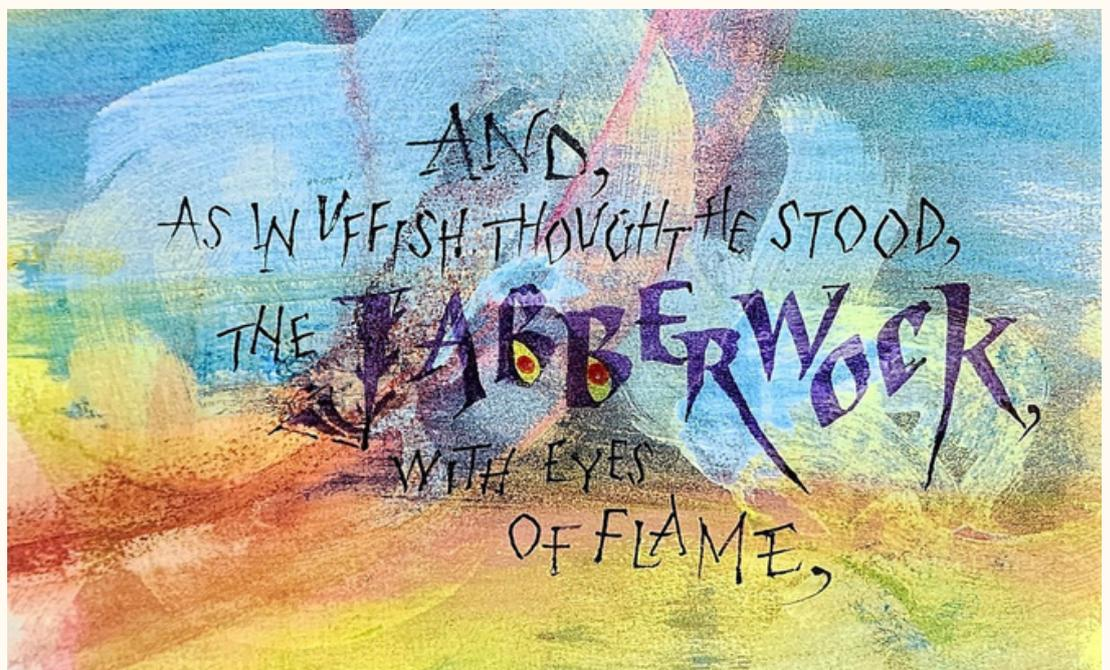 AND,
AS IN UFFISH THOUGHT HE STOOD,
THE JABBERWOCK,
WITH EYES
OF FLAME,